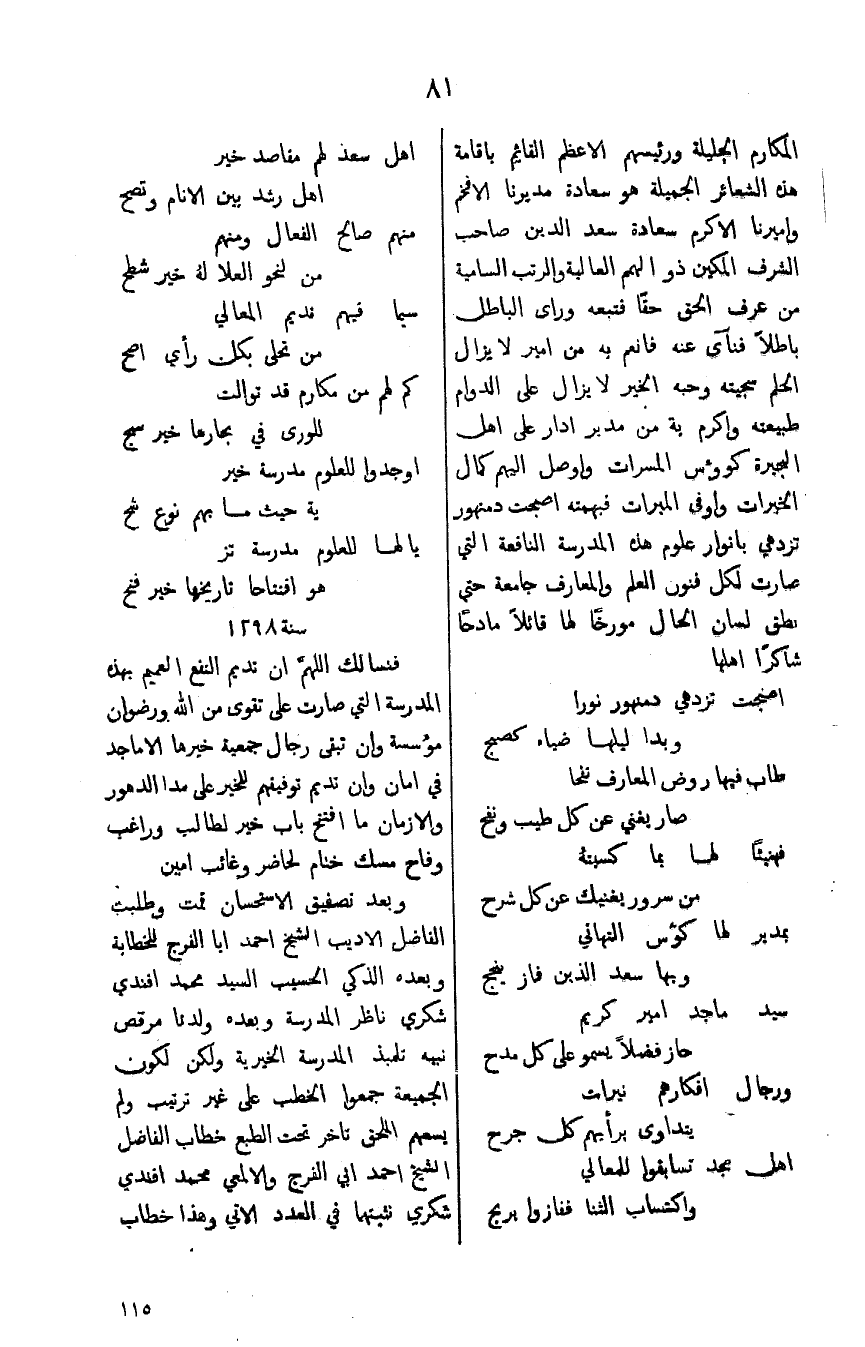 ٨١
المكارم الجليلة ورئيسهم الاعظم القائم باقامة
هذه الشعائر الجميلة هو سعادة مديرنا الافخم
واميرنا الاكرم سعادة سعد الدين صاحب
الشرف المكين ذو الهمم العالية والرتب السامية
من عرف الحق حقًا فتبعه وراى الباطل
باطلاً فنآى عنه فانعم به من امير لا يزال
الحلم سجيته وحبه الخير لا يزال على الدوام
طبيعته واكرم بة من مدير ادار على اهل
البحيرة كووئس المسرات واوصل اليهم كمال
الخيرات واوفي المبرات فبهمته اصبحت دمنهور
تزدهي بانوار علوم هذه المدرسة النافعة التي
صارت لكل فنون العلم والمعارف جامعة حتي
نطق لسان الحال مورخًا لها قائلاً مادحًا
شاكرًا اهلها
اصبحت تزدهي دمنهور نورا
وبدا ليلها ضياء كصبح
طاب فيها روض المعارف نفحا
صار يغني عن كل طيب ونفح
فهنيئًا لها بما كسبتهُ
من سرور يغنيك عن كل شرح
بمدير لها كؤس التهاني
وبها سعد الدين فاز بنجح
سيد ماجد امير كريم
حاز فضلاً يسمو على كل مدح
ورجال افكارهم نيرات
يتداوى برأيهم كل جرح
اهل مجد تسابقوا للمعالي
واكتساب الثنا ففازوا بربح
اهل سعد لهم مقاصد خير
اهل رشد بين الانام ونصح
منهم صالح الفعال ومنهم
من لنحو العلا لهُ خير شطح
سيما فيهم نديم المعالي
من تحلى بكل رأي اصح
كم لهم من مكارم قد توالت
للورى في بحارها خير سبح
اوجدوا للعلوم مدرسة خير
ية حيث ما بهم نوع شح
يالها للعلوم مدرسة تز
هو افتتاحا تاريخها خير فتح
سنة ١٢٩٨
فنسالك اللهمَّ ان تديم النفع العميم بهذه
المدرسة التي صارت على تقوى من الله ورضوان
مؤسسة وان تبقى رجال جمعية خيرها الاماجد
في امان وان تديم توفيقهم للخير على مدا الدهور
والازمان ما افتتح باب خير لطالب وراغب
وفاح مسك ختام لحاضر وغائب امين
وبعد تصفيق الاستحسان قمت وطلبت
الفاضل الاديب الشيخ احمد ابا الفرج للخطابة
وبعده الذكي الحسيب السيد محمد افندي
شكري ناظر المدرسة وبعده ولدنا مرقص
نبيه تلميذ المدرسة الخيرية ولكن لكون
الجميعة جمعوا الخطب على غير ترتيب ولم
يسعهم اللحق تاخر تحت الطبع خطاب الفاضل
الشيخ احمد ابي الفرج والالمعي محمد افندي
شكري نثبتها في العدد الاتي وهذا خطاب
١١٥